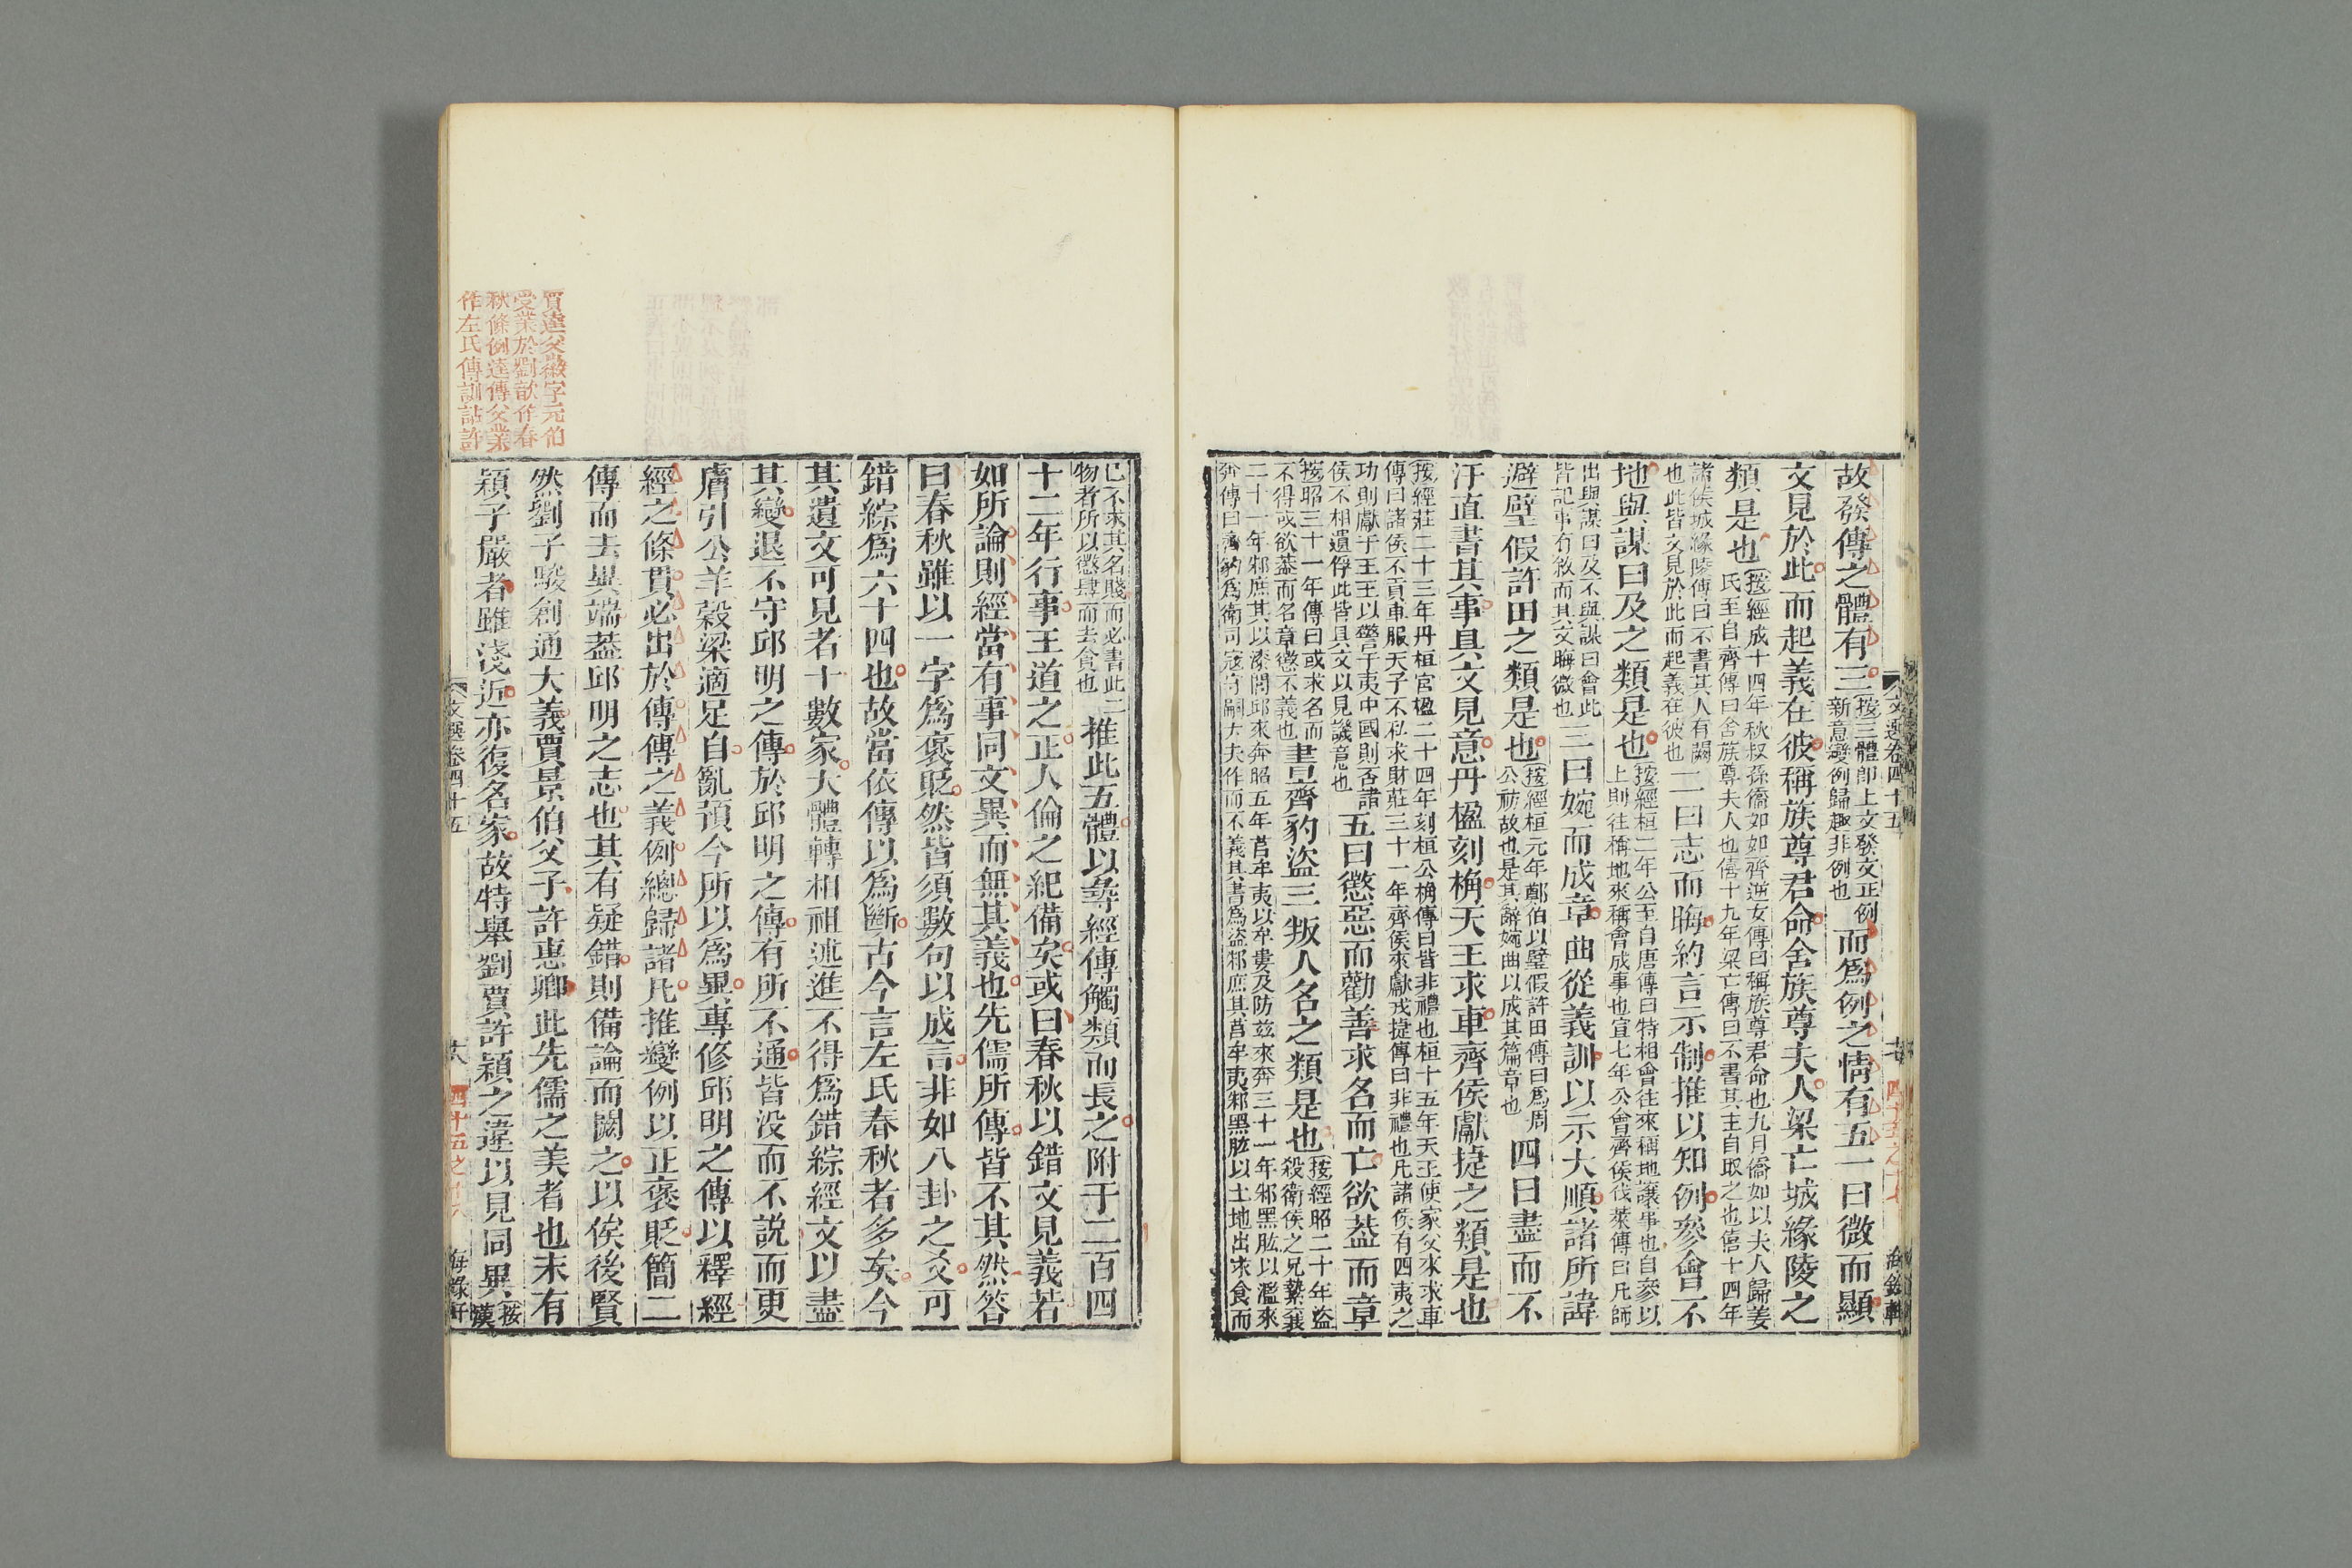 文選卷四十五
海錄軒
故發傳之體有三按三體卽上文發文正例新意變例歸趣非例也而爲例之情有五一曰微而顯
文見於此而起義在彼稱族尊君命舍族尊夫人梁亡城緣陵之
類是也按經成十四年秋叔孫僑如如齊逆女傳曰稱族尊君命也九月僑如以夫人歸姜氏至自齊傳曰舍族尊夫人也僖十九年梁亡傳曰不書其主自取之也僖十四年
諸侯城緣陵傳曰不書其人有闕也此皆文見於此而起義在彼也二曰志而晦約言示制推以知例參會不
地與謀曰及之類是也按經桓二年公至自唐傳曰特相會往來稱地讓事也自參以上則往稱地來稱會成事也宣七年公會齊侯伐萊傳曰凡師
出與謀曰及不與謀曰會此皆記事有敘而其文晦微也三曰婉而成章曲從義訓以示大順諸所諱
避璧假許田之類是也按經桓元年鄭伯以璧假許田傳曰爲周公祊故也是其辭婉曲以成其篇章也四曰盡而不
汙直書其事具文見意丹楹刻桷天王求車齊侯獻捷之類是也
按經莊二十三年丹桓宮楹二十四年刻桓公桷傳曰皆非禮也桓十五年天王使家父來求車傳曰諸侯不貢車服天子不私求財莊三十一年齊侯來獻戎捷傳曰非禮也凡諸侯有四夷之
功則獻于王王以警于夷中國則否諸侯不相遺俘此皆具文以見譏意也五曰懲惡而勸善求名而亡欲葢而章
按昭三十一年傳曰或求名而不得或欲葢而名章懲不義也書齊豹盜三叛人名之類是也按經昭二十年盜殺衛侯之兄縶襄
二十一年邾庶其以漆閭邱來奔昭五年莒牟夷以牟婁及防兹來奔三十一年邾黑肱以濫來奔傳曰齊豹爲衛司寇守嗣大夫作而不義其書爲盜邾庶其莒牟夷邾黑肱以土地出求食而
已不求其名賤而必書此二物者所以懲肆而去貪也推此五體以尋經傳觸類而長之附于二百四
十二年行事王道之正人倫之紀備矣或曰春秋以錯文見義若
如所論則經當有事同文異而無其義也先儒所傳皆不其然答
曰春秋雖以一字爲褒貶然皆須數句以成言非如八卦之爻可
錯綜爲六十四也故當依傳以爲斷古今言左氏春秋者多矣今
其遺文可見者十數家大體轉相祖述進不得爲錯綜經文以盡
其變退不守邱明之傳於邱明之傳有所不通皆没而不說而更
膚引公羊榖梁適足自亂預今所以爲異專修邱明之傳以釋經
經之條貫必出於傳傳之義例總歸諸凡推變例以正褒貶簡二
傳而去異端葢邱明之志也其有疑錯則備論而闕之以俟後賢
然劉子駿創通大義賈景伯父子許惠卿此先儒之美者也末有
潁子嚴者雖淺近亦復名家故特舉劉賈許潁之違以見同異按漢
賈逵父徽字元伯
受業於劉歆作春
秋條例逵傳父業
作左氏傳訓詁許
文選卷四十五
十八
四十五之十八
海錄軒